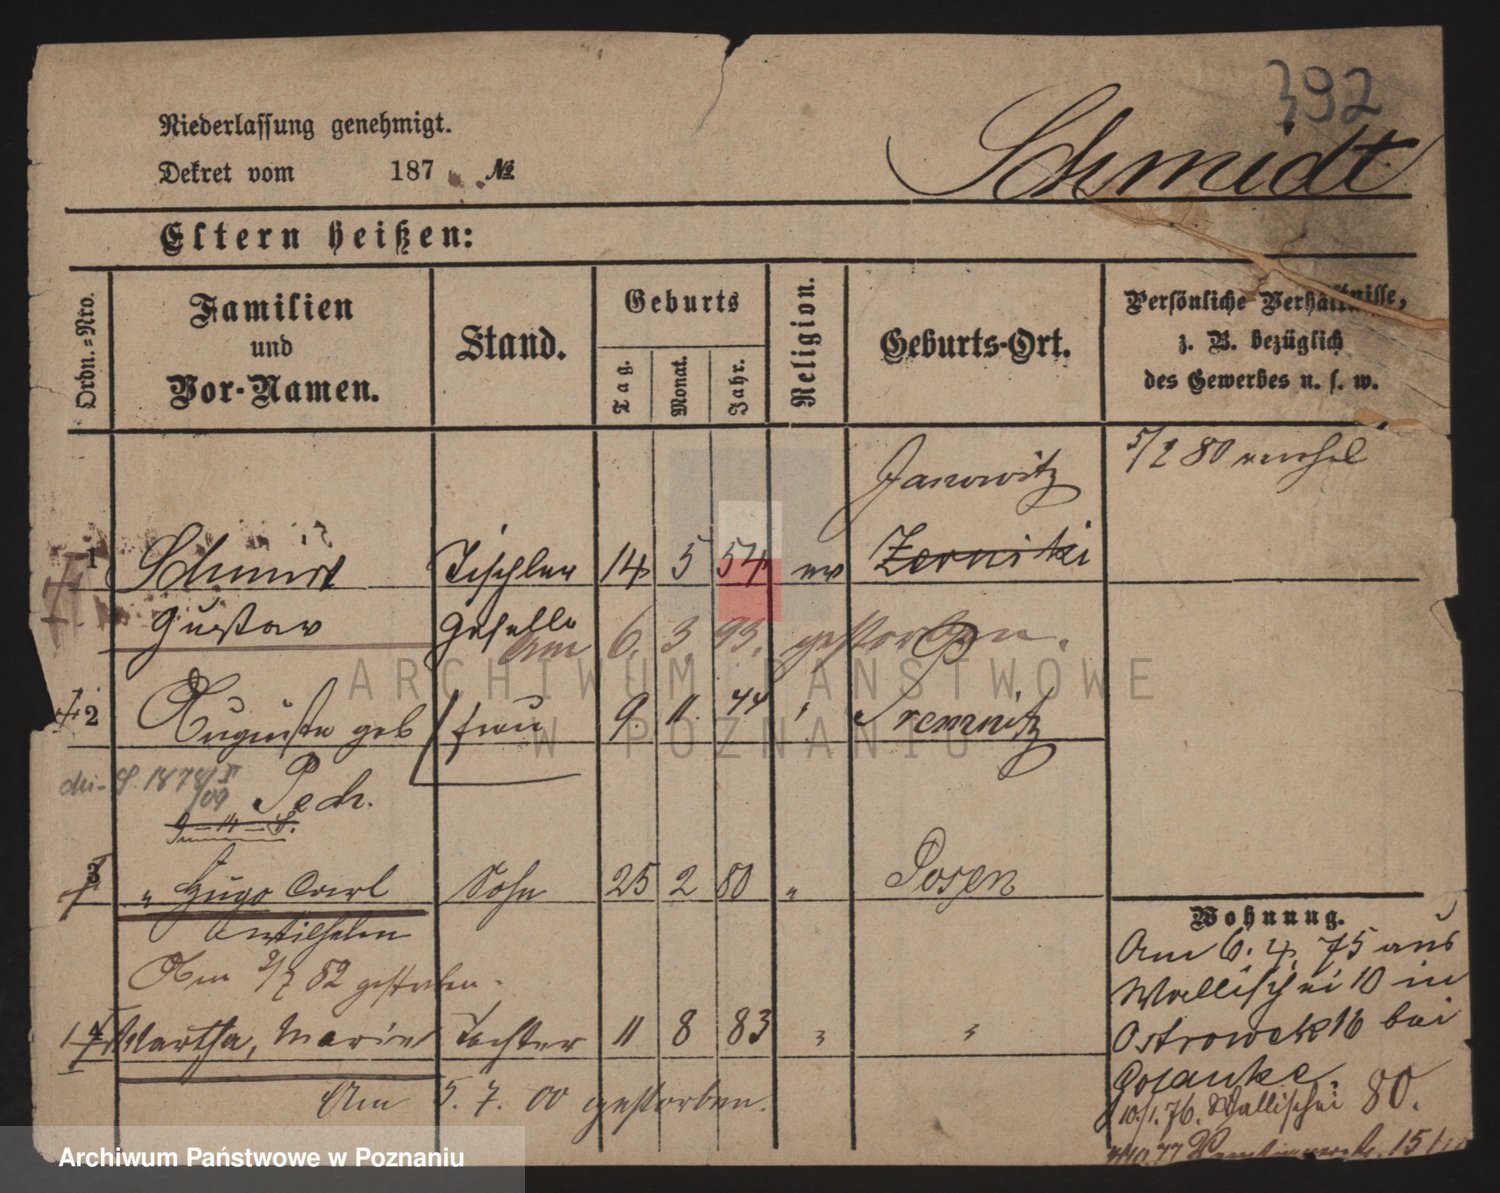 392
Niederlassung genehmigt.
Schmidt
Dekret vom 187 №
Eltern heißen:
Ordn.=Nro.
Familien
und
Vor-Namen.
Stand.
Geburts
Tag.
Monat.
Jahr.
Religion.
Geburts-Ort.
Persönliche Verhältnisse,
z. B. bezüglich
des Gewerbes u. s. w.
Janowitz
5/2 80
1 Schmidt Tischler 14 5 54 ev Zerniki
Gustav Geselle
Am 6. 3. 93. gestorben.
2 Auguste geb Frau 9. 11. 44
Pech.
3 " Hugo Carl Sohn 25 2 80 " Posen
Wilhelm
Am 2/7 82 gestorben.
4 Martha, Marie Tochter 11 8 83 " "
Am 5. 7. 00 gestorben.
Wohnung.
Am 6. 4. 75 aus
Wallischei 10 in
Ostrowek 16 bei
Posanke
10./1. 76. Wallischei 80.
ARCHIWUM PAŃSTWOWE
W POZNANIU
Archiwum Państwowe w Poznaniu